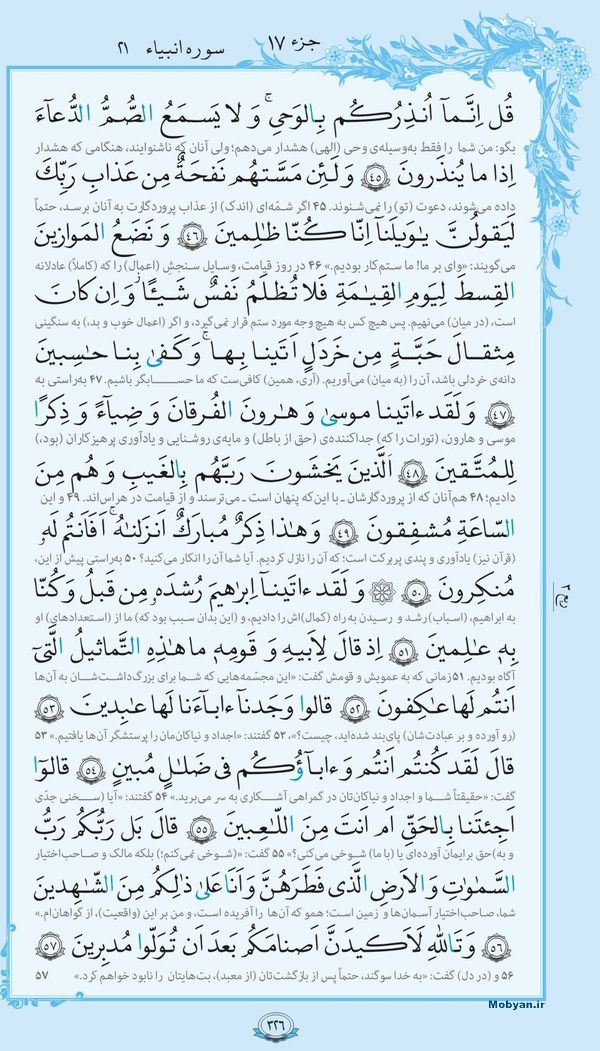 جزء ۱۷
سوره انبیاء ۲۱
قُل اِنَّمآ اُنذِرُكُم بِالوَحىِ ۚ وَ لا يَسمَعُ الصُّمُّ الدُّعآءَ
بگو: من شما را فقط به‌وسیله‌ی وحی (الهی) هشدار می‌دهم؛ ولی آنان که ناشنوایند، هنگامی که هشدار
اِذا ما يُنذَرونَ ﴿٤٥﴾ وَ لَئِن مَسَّتهُم نَفحَةٌ مِن عَذابِ رَبِّكَ
داده می‌شوند، دعوت (تو) را نمی‌شنوند. ۴۵ اگر شمّه‌ای (اندک) از عذاب پروردگارت به آنان برسد، حتماً
لَيَقولُنَّ يٰوَيلَنا اِنّا كُنّا ظٰلِمينَ ﴿٤٦﴾ وَ نَضَعُ المَوازينَ
می‌گویند: «وای بر ما! ما ستم‌کار بودیم.» ۴۶ در روز قیامت، وسایل سنجش (اعمال) را که (کاملاً) عادلانه
القِسطَ لِيَومِ القِيٰمَةِ فَلا تُظلَمُ نَفسٌ شَيـًٔا ۖ وَ اِن كانَ
است، (در میان) می‌نهیم. پس هیچ کس به هیچ وجه مورد ستم قرار نمی‌گیرد، و اگر (اعمال خوب و بد،) به سنگینی
مِثقالَ حَبَّةٍ مِن خَردَلٍ اَتَينا بِها ۗ وَ كَفىٰ بِنا حٰسِبينَ
دانه‌ی خردلی باشد، آن را (به میان) می‌آوریم. (آری، همین) کافی‌ست که ما حسابگر باشیم. ۴۷ به‌راستی به
﴿٤٧﴾ وَ لَقَد ءاتَينا موسىٰ وَ هٰرونَ الفُرقانَ وَ ضِيآءً وَ ذِكرًا
موسی و هارون، (تورات را که) جداکننده‌ی (حق از باطل) و مایه‌ی روشنایی و یادآوری پرهیزکاران (بود،)
لِلمُتَّقينَ ﴿٤٨﴾ اَلَّذينَ يَخشَونَ رَبَّهُم بِالغَيبِ وَ هُم مِنَ
دادیم؛ ۴۸ هم‌آنان که از پروردگارشان ـ با این‌که پنهان است ـ می‌ترسند و از قیامت در هراس‌اند. ۴۹ و این
السّاعَةِ مُشفِقونَ ﴿٤٩﴾ وَ هٰذا ذِكرٌ مُبارَكٌ اَنزَلنٰهُ ۚ اَفَاَنتُم لَهو
(قرآن نیز) یادآوری و پندی پربرکت است؛ که آن را نازل کردیم. آیا شما آن را انکار می‌کنید؟ ۵۰ به‌راستی پیش از این،
مُنكِرونَ ﴿٥٠﴾ وَ لَقَد ءاتَينآ اِبرٰهيمَ رُشدَهو مِن قَبلُ وَ كُنّا
به ابراهیم، (اسباب) رشد و رسیدن به راه (کمال)اش را دادیم، و (این بدان سبب بود که) ما از (استعدادهای) او
بِهى عٰلِمينَ ﴿٥١﴾ اِذ قالَ لِاَبيهِ وَ قَومِهى ما هٰذِهِ التَّماثيلُ الَّتى
آگاه بودیم. ۵۱ زمانی که به عمویش و قومش گفت: «این مجسّمه‌هایی که شما برای بزرگ‌داشت‌شان به آن‌ها
اَنتُم لَها عٰكِفونَ ﴿٥٢﴾ قالوا وَجَدنآ ءابآءَنا لَها عٰبِدينَ ﴿٥٣﴾
(رو آورده و بر عبادت‌شان) پای‌بند شده‌اید، چیست؟»، ۵۲ گفتند: «اجداد و نیاکان‌مان را پرستشگر آن‌ها یافتیم.» ۵۳
قالَ لَقَد كُنتُم اَنتُم وَ ءابآؤُكُم فى ضَلٰلٍ مُبينٍ ﴿٥٤﴾ قالوٓا
گفت: «حقیقتاً شما و اجداد و نیاکان‌تان در گمراهی آشکاری به سر می‌برید.» ۵۴ گفتند: «آیا (سخنی جدّی
اَجِئتَنا بِالحَقِّ اَم اَنتَ مِنَ اللّٰعِبينَ ﴿٥٥﴾ قالَ بَل رَبُّكُم رَبُّ
و به) حق برایمان آورده‌ای یا (با ما) شوخی می‌کنی؟» ۵۵ گفت: «(شوخی نمی‌کنم؛) بلکه مالک و صاحب‌اختیار
السَّمٰوٰتِ وَ الاَرضِ الَّذى فَطَرَهُنَّ وَ اَنَا عَلىٰ ذٰلِكُم مِنَ الشّٰهِدينَ
شما، صاحب‌اختیار آسمان‌ها و زمین است؛ همو که آن‌ها را آفریده است، و من بر این (واقعیت)، از گواهان‌ام.»
﴿٥٦﴾ وَ تَاللّٰهِ لَاَكيدَنَّ اَصنامَكُم بَعدَ اَن تُوَلّوا مُدبِرينَ ﴿٥٧﴾
۵۶ و (در دل) گفت: «به خدا سوگند، حتماً پس از بازگشت‌تان (از معبد)، بت‌هایتان را نابود خواهم کرد.» ۵۷
۳۲۶
Mobyan.ir